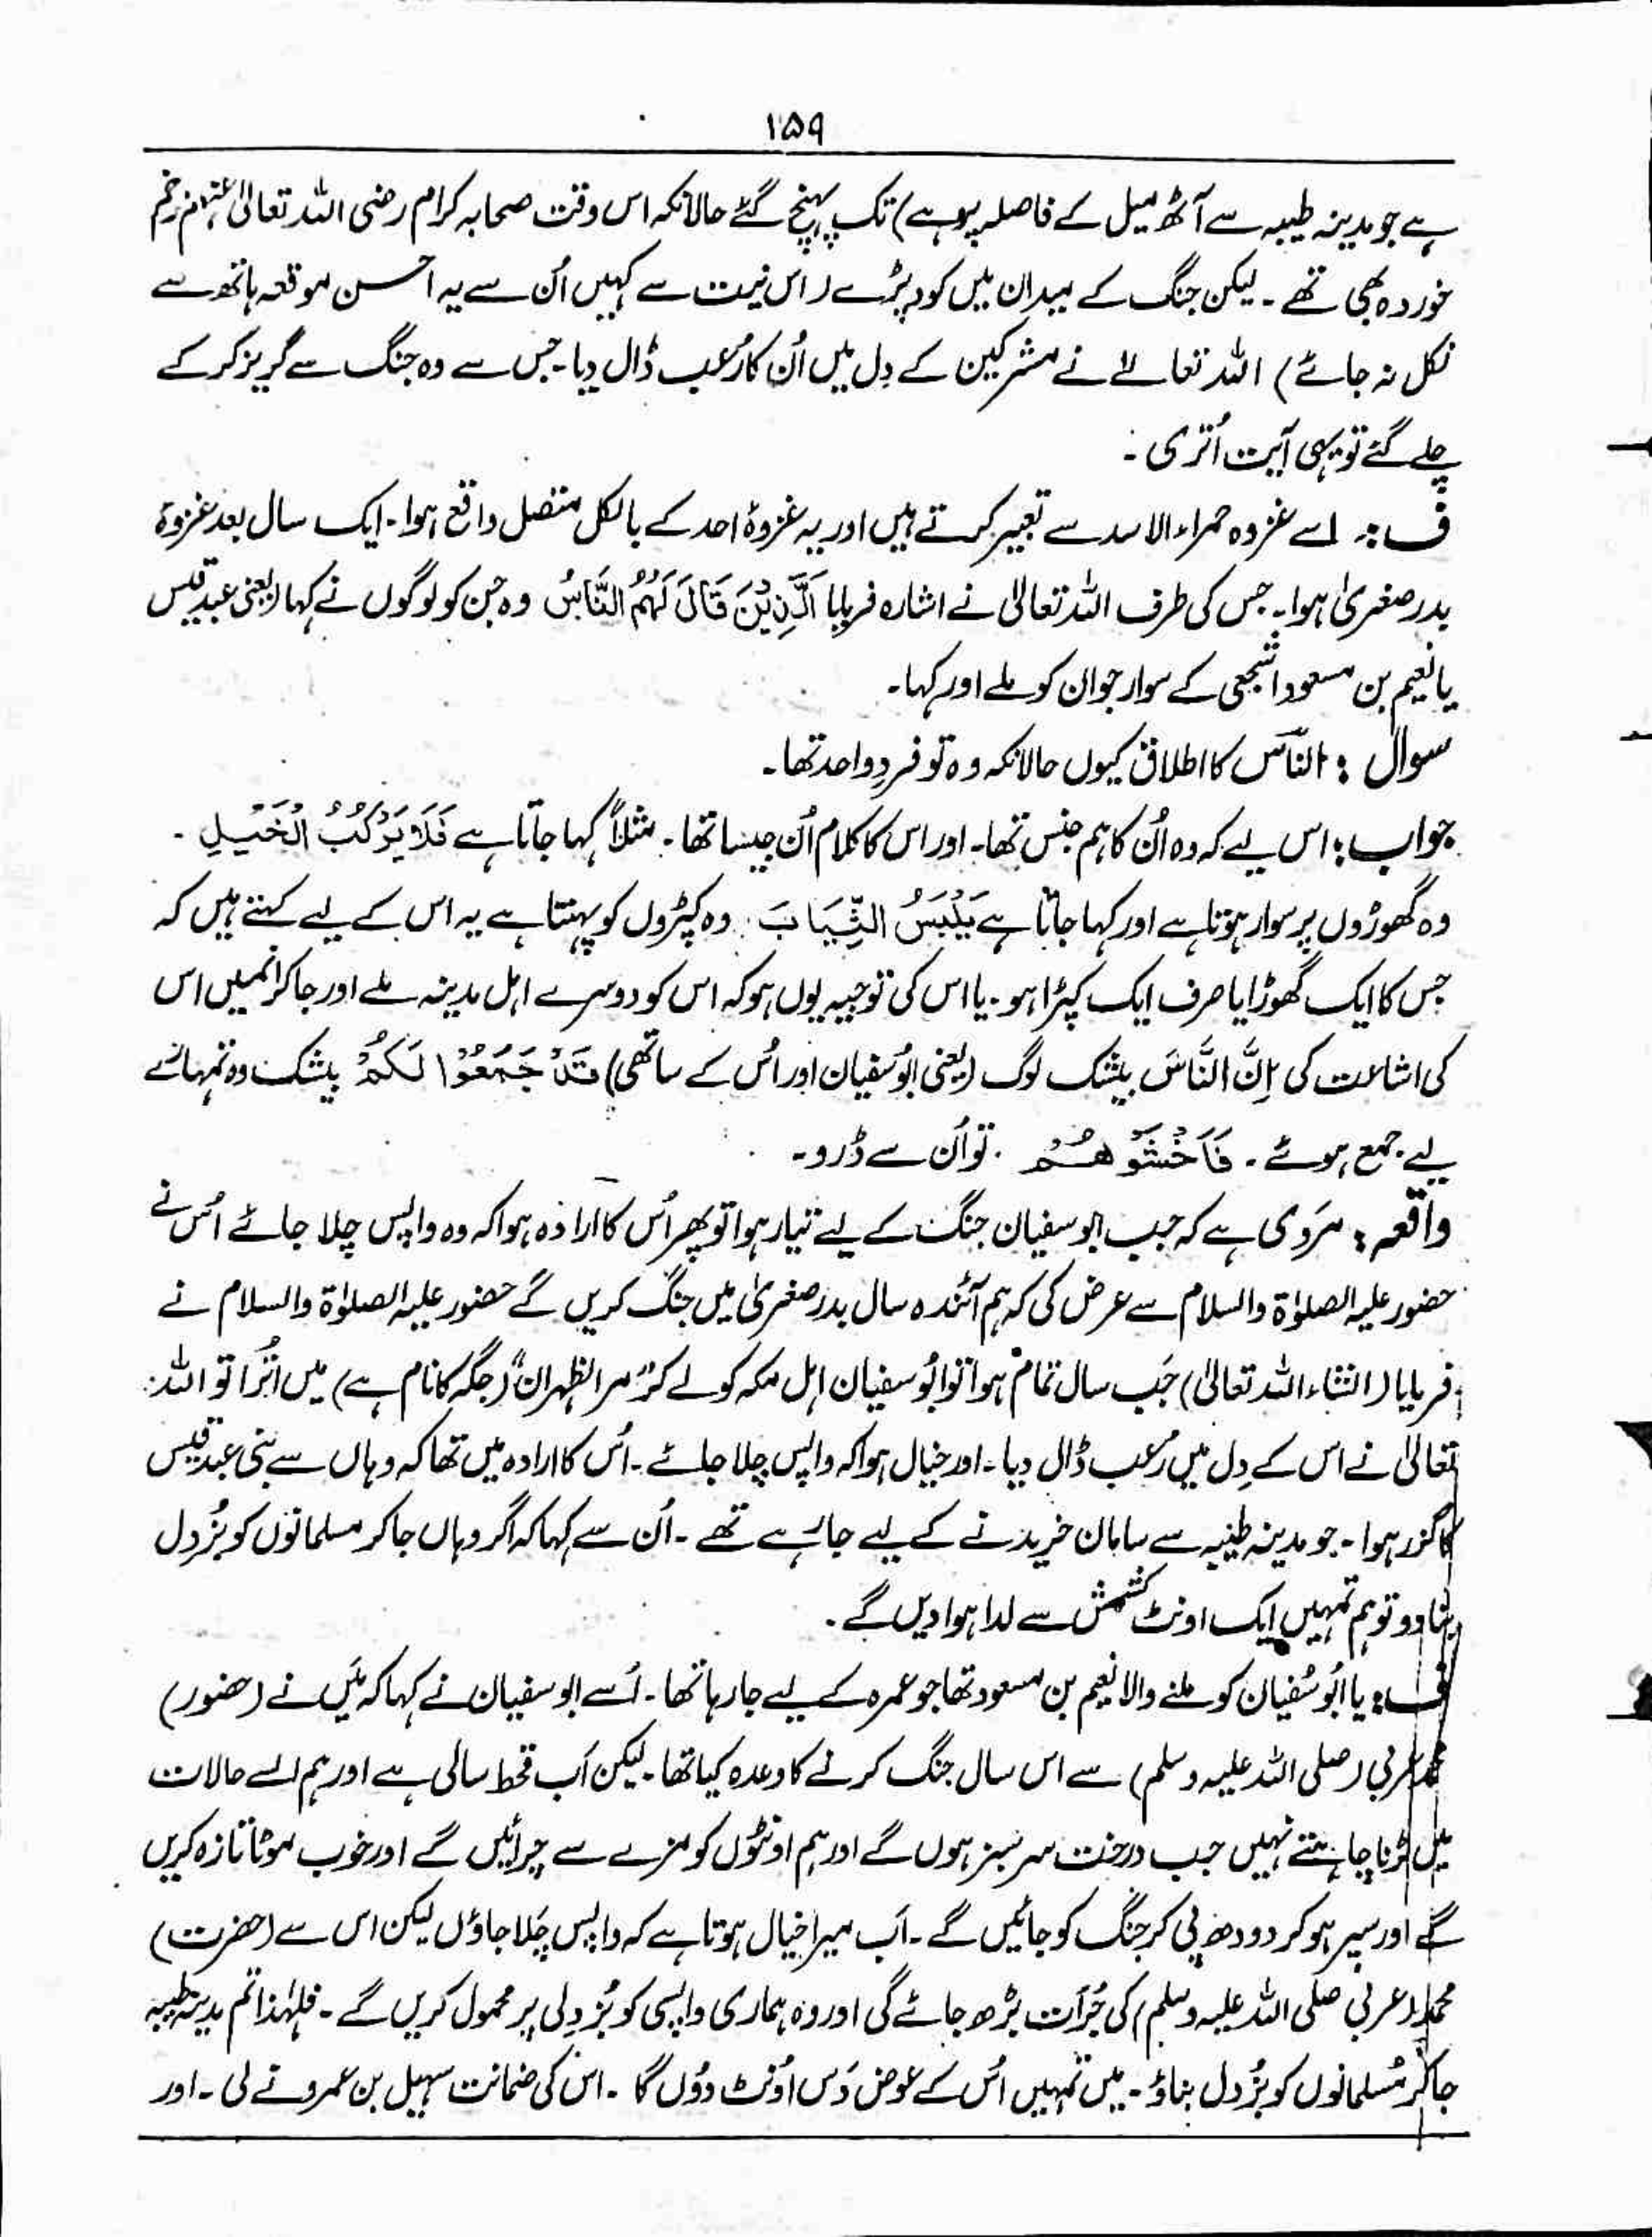 ۱۵۹
ہے جو مدینہ طیبہ سے آٹھ میل کے فاصلہ پر ہے) تک پہنچ گئے حالانکہ اس وقت صحابہ کرام رضی اللہ تعالیٰ عنہم زخم
خوردہ بھی تھے ۔ لیکن جنگ کے میدان میں کود پڑے (اس نیت سے کہیں اُن سے یہ احسن موقعہ ہاتھ سے
نکل نہ جائے) اللہ تعالےٰ نے مشرکین کے دِل میں اُن کا رُعب ڈال دیا ۔ جس سے وہ جنگ سے گریز کر کے
چلے گئے تو یہی آیت اُتری ۔
ف : اسے غزوہ حمراء الاسد سے تعبیر کرتے ہیں اور یہ غزوۂ احد کے بالکل متصل واقع ہوا ۔ ایک سال بعد غزوۂ
بدر صغریٰ ہوا ۔ جس کی طرف اللہ تعالیٰ نے اشارہ فرمایا اَلَّذِیْنَ قَالَ لَہُمُ النَّاسُ وہ جن کو لوگوں نے کہا (یعنی عبد قیس
یا نعیم بن مسعود اشجعی کے سوار جو ان کو ملے اور کہا ۔
سوال : النَّاس کا اطلاق کیوں حالانکہ وہ تو فردِ واحد تھا ۔
جواب : اس لیے کہ وہ اُن کا ہم جنس تھا ۔ اور اس کا کلام اُن جیسا تھا ۔ مثلاً کہا جاتا ہے فَلَا یَرْکَبُ الْخَیْلِ ۔
وہ گھوڑوں پر سوار ہوتا ہے اور کہا جاتا ہے یَلْبَسُ الثِّیَابَ . وہ کپڑوں کو پہنتا ہے یہ اس کے لیے کہتے ہیں کہ
جس کا ایک گھوڑا یا صرف ایک کپڑا ہو ۔ یا اس کی توجیہ یوں ہو کہ اس کو دوسرے اہل مدینہ ملے اور جا کر انھیں اس
کی اشاعت کی اِنَّ النَّاسَ بیشک لوگ (یعنی ابُو سفیان اور اُس کے ساتھی) قَدْ جَمَعُوْا لَکُمْ بیشک وہ تمہارے
لیے جمع ہوئے ۔ فَاخْشَوْھُمْ . تو اُن سے ڈرو ۔
واقعہ : مَروی ہے کہ جب ابو سفیان جنگ کے لیے تیار ہوا تو پھر اُس کا ارادہ ہوا کہ وہ واپس چلا جائے اُس نے
حضور علیہ الصلوٰۃ والسلام سے عرض کی کہ ہم آئندہ سال بدر صغریٰ میں جنگ کریں گے حضور علیہ الصلوٰۃ والسلام نے
فرمایا (انشاء اللہ تعالیٰ) جَب سال تمام ہوا تو ابُو سفیان اہل مکہ کو لے کر مر الظہران (جگہ کا نام ہے) میں اُترا تو اللہ
تعالیٰ نے اس کے دِل میں رُعب ڈال دیا ۔ اور خیال ہوا کہ واپس چلا جائے ۔ اُس کا ارادہ میں تھا کہ وہاں سے بنی عبد قیس
کا گزر ہوا ۔ جو مدینہ طیبہ سے سامان خریدنے کے لیے جا رہے تھے ۔ اُن سے کہا کہ اگر وہاں جا کر مسلمانوں کو بُزدل
بنا دو تو ہم تمہیں ایک اونٹ کشمش سے لدا ہوا دیں گے ۔
ف : یا ابُو سُفیان کو ملنے والا نعیم بن مسعود تھا جو عمرہ کے لیے جا رہا تھا ۔ اُسے ابو سفیان نے کہا کہ مَیں نے (حضور)
محمد عربی (صلی اللہ علیہ وسلم) سے اس سال جنگ کرنے کا وعدہ کیا تھا ۔ لیکن اَب قحط سالی ہے اور ہم ایسے حالات
میں لڑنا چاہتے نہیں جب درخت سر سبز ہوں گے اور ہم اونٹوں کو مزے سے چرائیں گے اور خوب موٹا تازہ کریں
گے اور سیر ہو کر دودھ پی کر جنگ کو جائیں گے ۔ اَب میرا خیال ہوتا ہے کہ واپس چَلا جاؤں لیکن اس سے (حضرت)
محمد (عربی صلی اللہ علیہ وسلم) کی جُرأت بڑھ جائے گی اور وہ ہماری واپسی کو بُزدِلی پر محمول کریں گے ۔ فلہٰذا تم مدینہ طیبہ
جا کر مُسلمانوں کو بُزدل بناؤ ۔ میں تمہیں اُس کے عوض دَس اُونٹ دوُں گا ۔ اس کی ضمانت سہیل بن عمرو نے لی ۔ اور